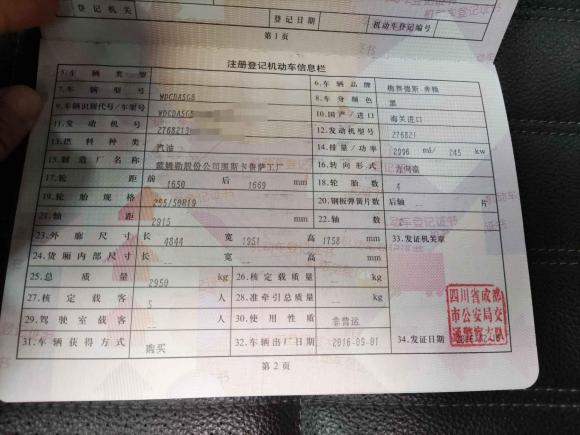 登记机关
登记日期
机动车登记编号
第1页
注册登记机动车信息栏
5.车辆类型
6.车辆品牌 梅赛德斯-奔驰
7.车辆型号 WDCDA5GB
8.车身颜色 黑
9.车辆识别代号/车架号 WDCDA5GB
10.国产/进口 海关进口
11.发动机号 2768213
12.发动机型号 276821
13.燃料种类 汽油
14.排量/功率 2996 ml/ 245 kw
15.制造厂名称 戴姆勒股份公司图斯卡鲁萨工厂
16.转向形式 方向盘
17.轮距 前 1650 后 1669 mm
18.轮胎数 4
19.轮胎规格 255/50R19
20.钢板弹簧片数 后轴 -- 片
21.轴距 2915 mm
22.轴数 2
23.外廓尺寸 长 4844 宽 1951 高 1758 mm
33.发证机关章
24.货厢内部尺寸 长 -- 宽 -- 高 -- mm
25.总质量 2950 kg
26.核定载质量 -- kg
27.核定载客 5 人
28.准牵引总质量 -- kg
29.驾驶室载客 -- 人
30.使用性质 非营运
31.车辆获得方式 购买
32.车辆出厂日期 2016-09-01
34.发证日期
四川省成都
市公安局交
通警察支队
第2页